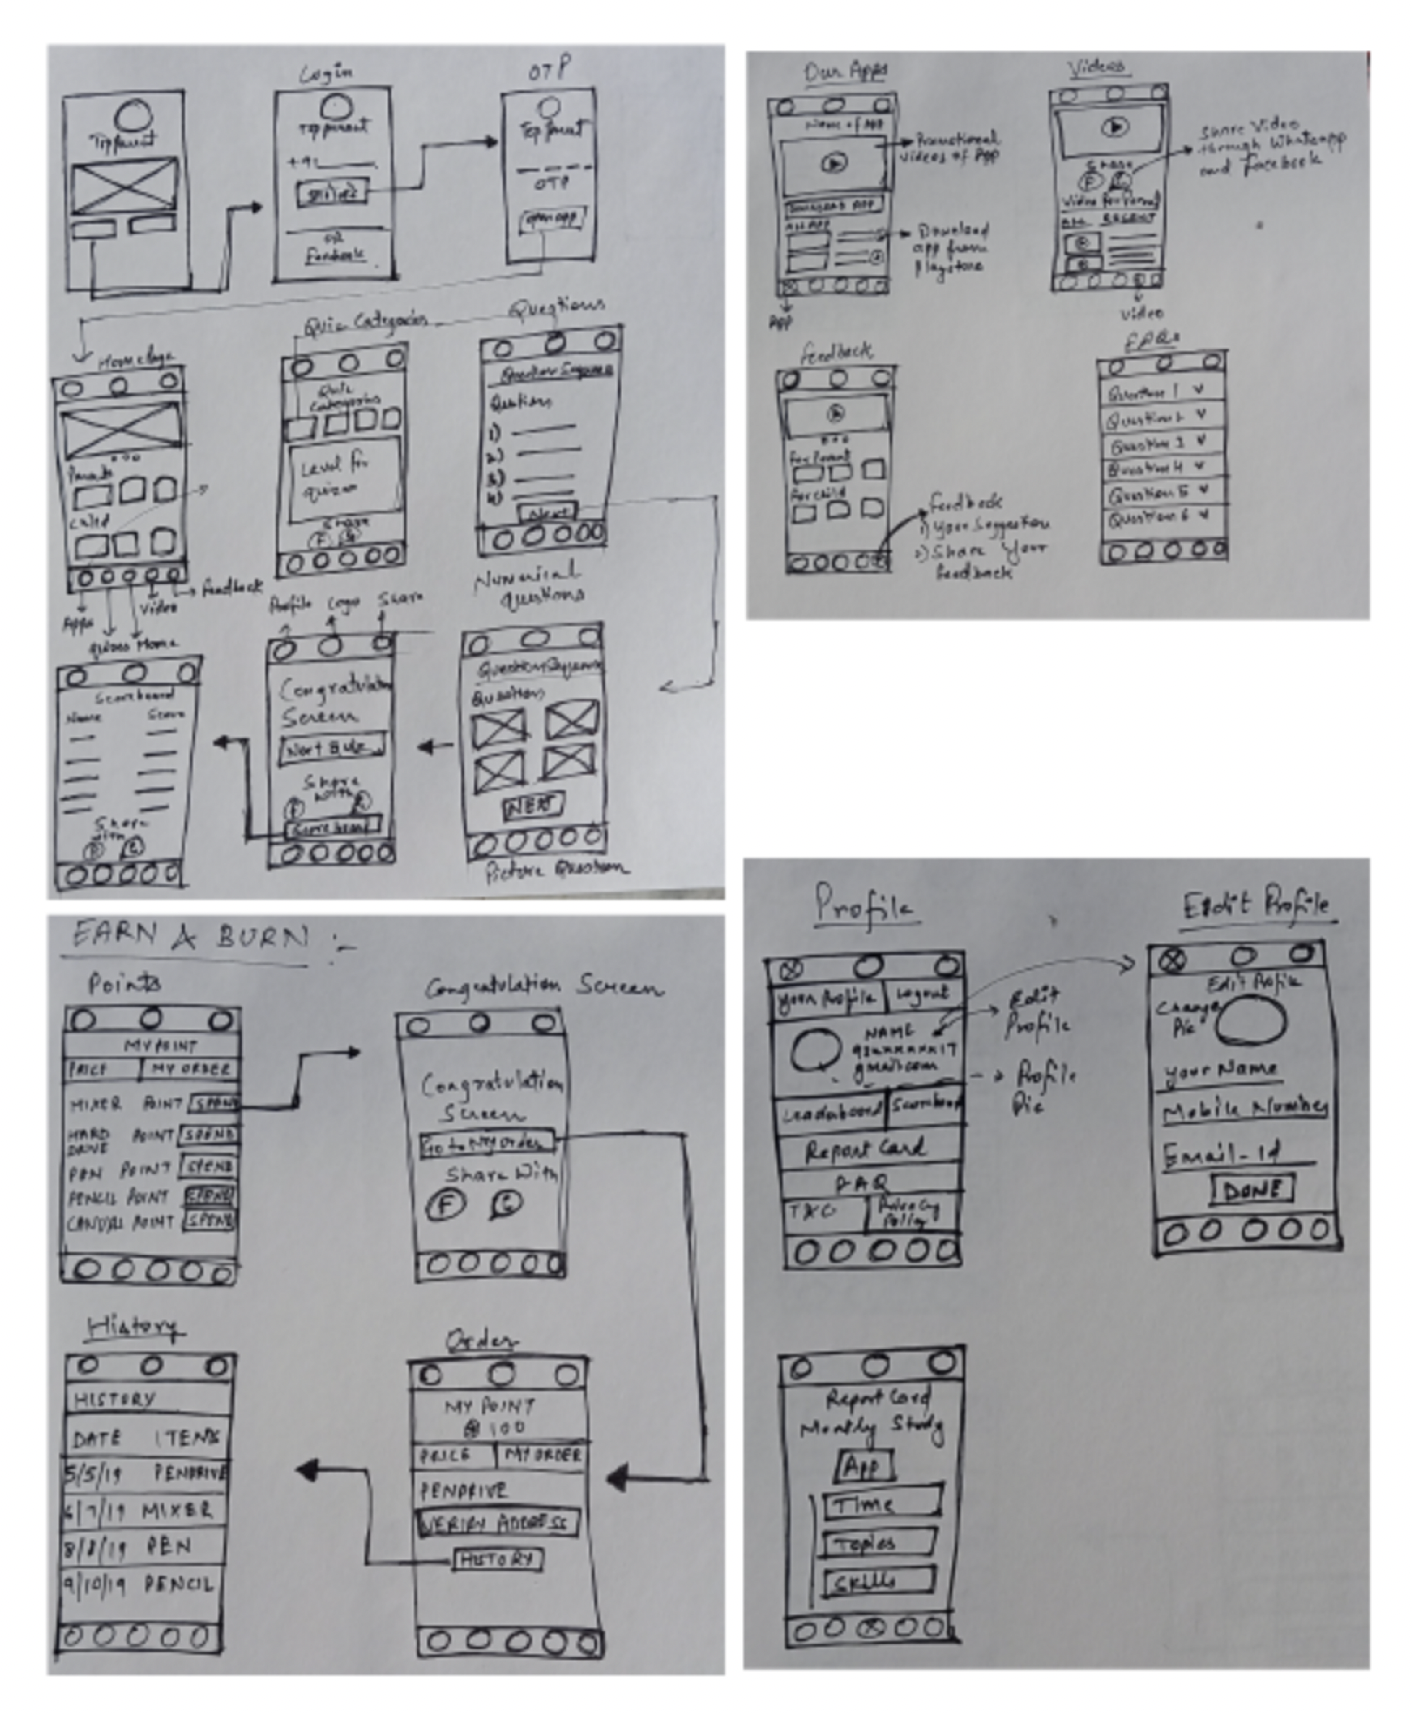 Login
OTP
Top parent
Top parent
Top parent
+91
OTP
open app
OR
Facebook
HomePage
Parents
Child
Apps
Quizes
Home
Video
Feedback
Quiz Categories
Quiz
Categories
Level for
quizes
Share
F
Questions
Question Sequence
Questions
1)
2)
3)
4)
Next
Numerical
Questions
Scoreboard
Name
Score
Share
with
F
Profile
Logo
Share
Congratulation
Screen
Next Quiz
Share
with
F
Score board
Question Sequence
Questions
NEXT
Picture Question
Our Apps
Name of App
Promotional
videos of App
Download App
All App
Download
app from
playstore
App
Videos
Share Video
through Whatsapp
and Facebook
Share
F
Video for Parent
ALL
RECENT
Video
Feedback
For Parent
For child
Feedback
1) your Suggestion
2) Share Your
feedback
FAQs
Question 1
Question 2
Question 3
Question 4
Question 5
Question 6
EARN & BURN :-
Points
MY POINT
PRICE
MY ORDER
MIXER POINT SPEND
HARD DRIVE POINT SPEND
PEN POINT SPEND
PENCIL POINT SPEND
POINT SPEND
Congratulation Screen
Congratulation
Screen
Go to My Order
Share With
F
History
HISTORY
DATE ITEMS
5/5/19 PENDRIVE
6/7/19 MIXER
8/8/19 PEN
9/10/19 PENCIL
Order
MY POINT
100
PRICE
MY ORDER
PENDRIVE
VERIFY ADDRESS
HISTORY
Profile
your Profile
Logout
NAME
gmail.com
Edit
Profile
Profile
Pic
Leaderboard
Scoreboard
Report Card
FAQ
T&C
Privacy
Policy
Edit Profile
Edit Profile
Change
Pic
your Name
Mobile Number
Email-Id
DONE
Report Card
Monthly Study
App
Time
Topics
Skills